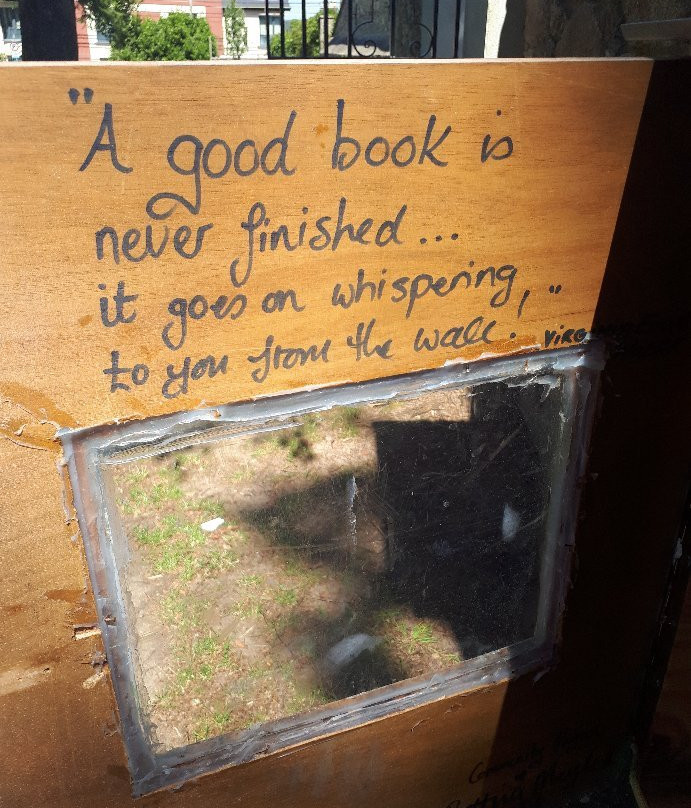 "A good book is
never finished...
it goes on whispering,"
to you from the wall.
Community